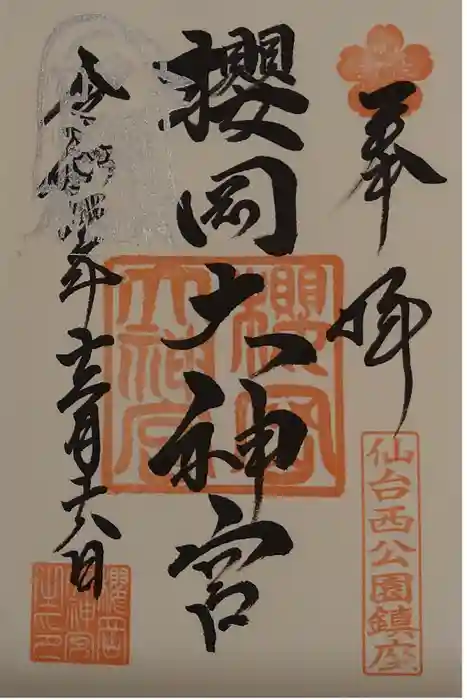 奉拝
仙台西公園鎮座
櫻岡大神宮
櫻岡大神宮
令和四年十二月十八日
櫻岡大神宮之印